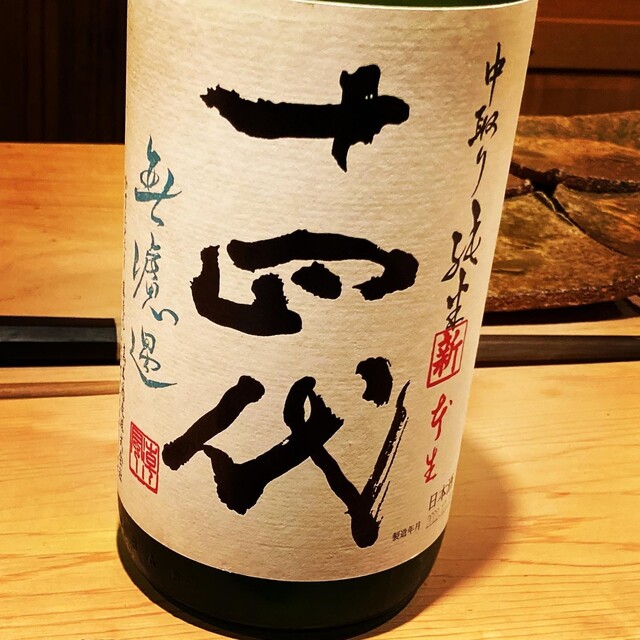 中取り純米
新
本生
十四代
無濾過
日本酒
製造年月